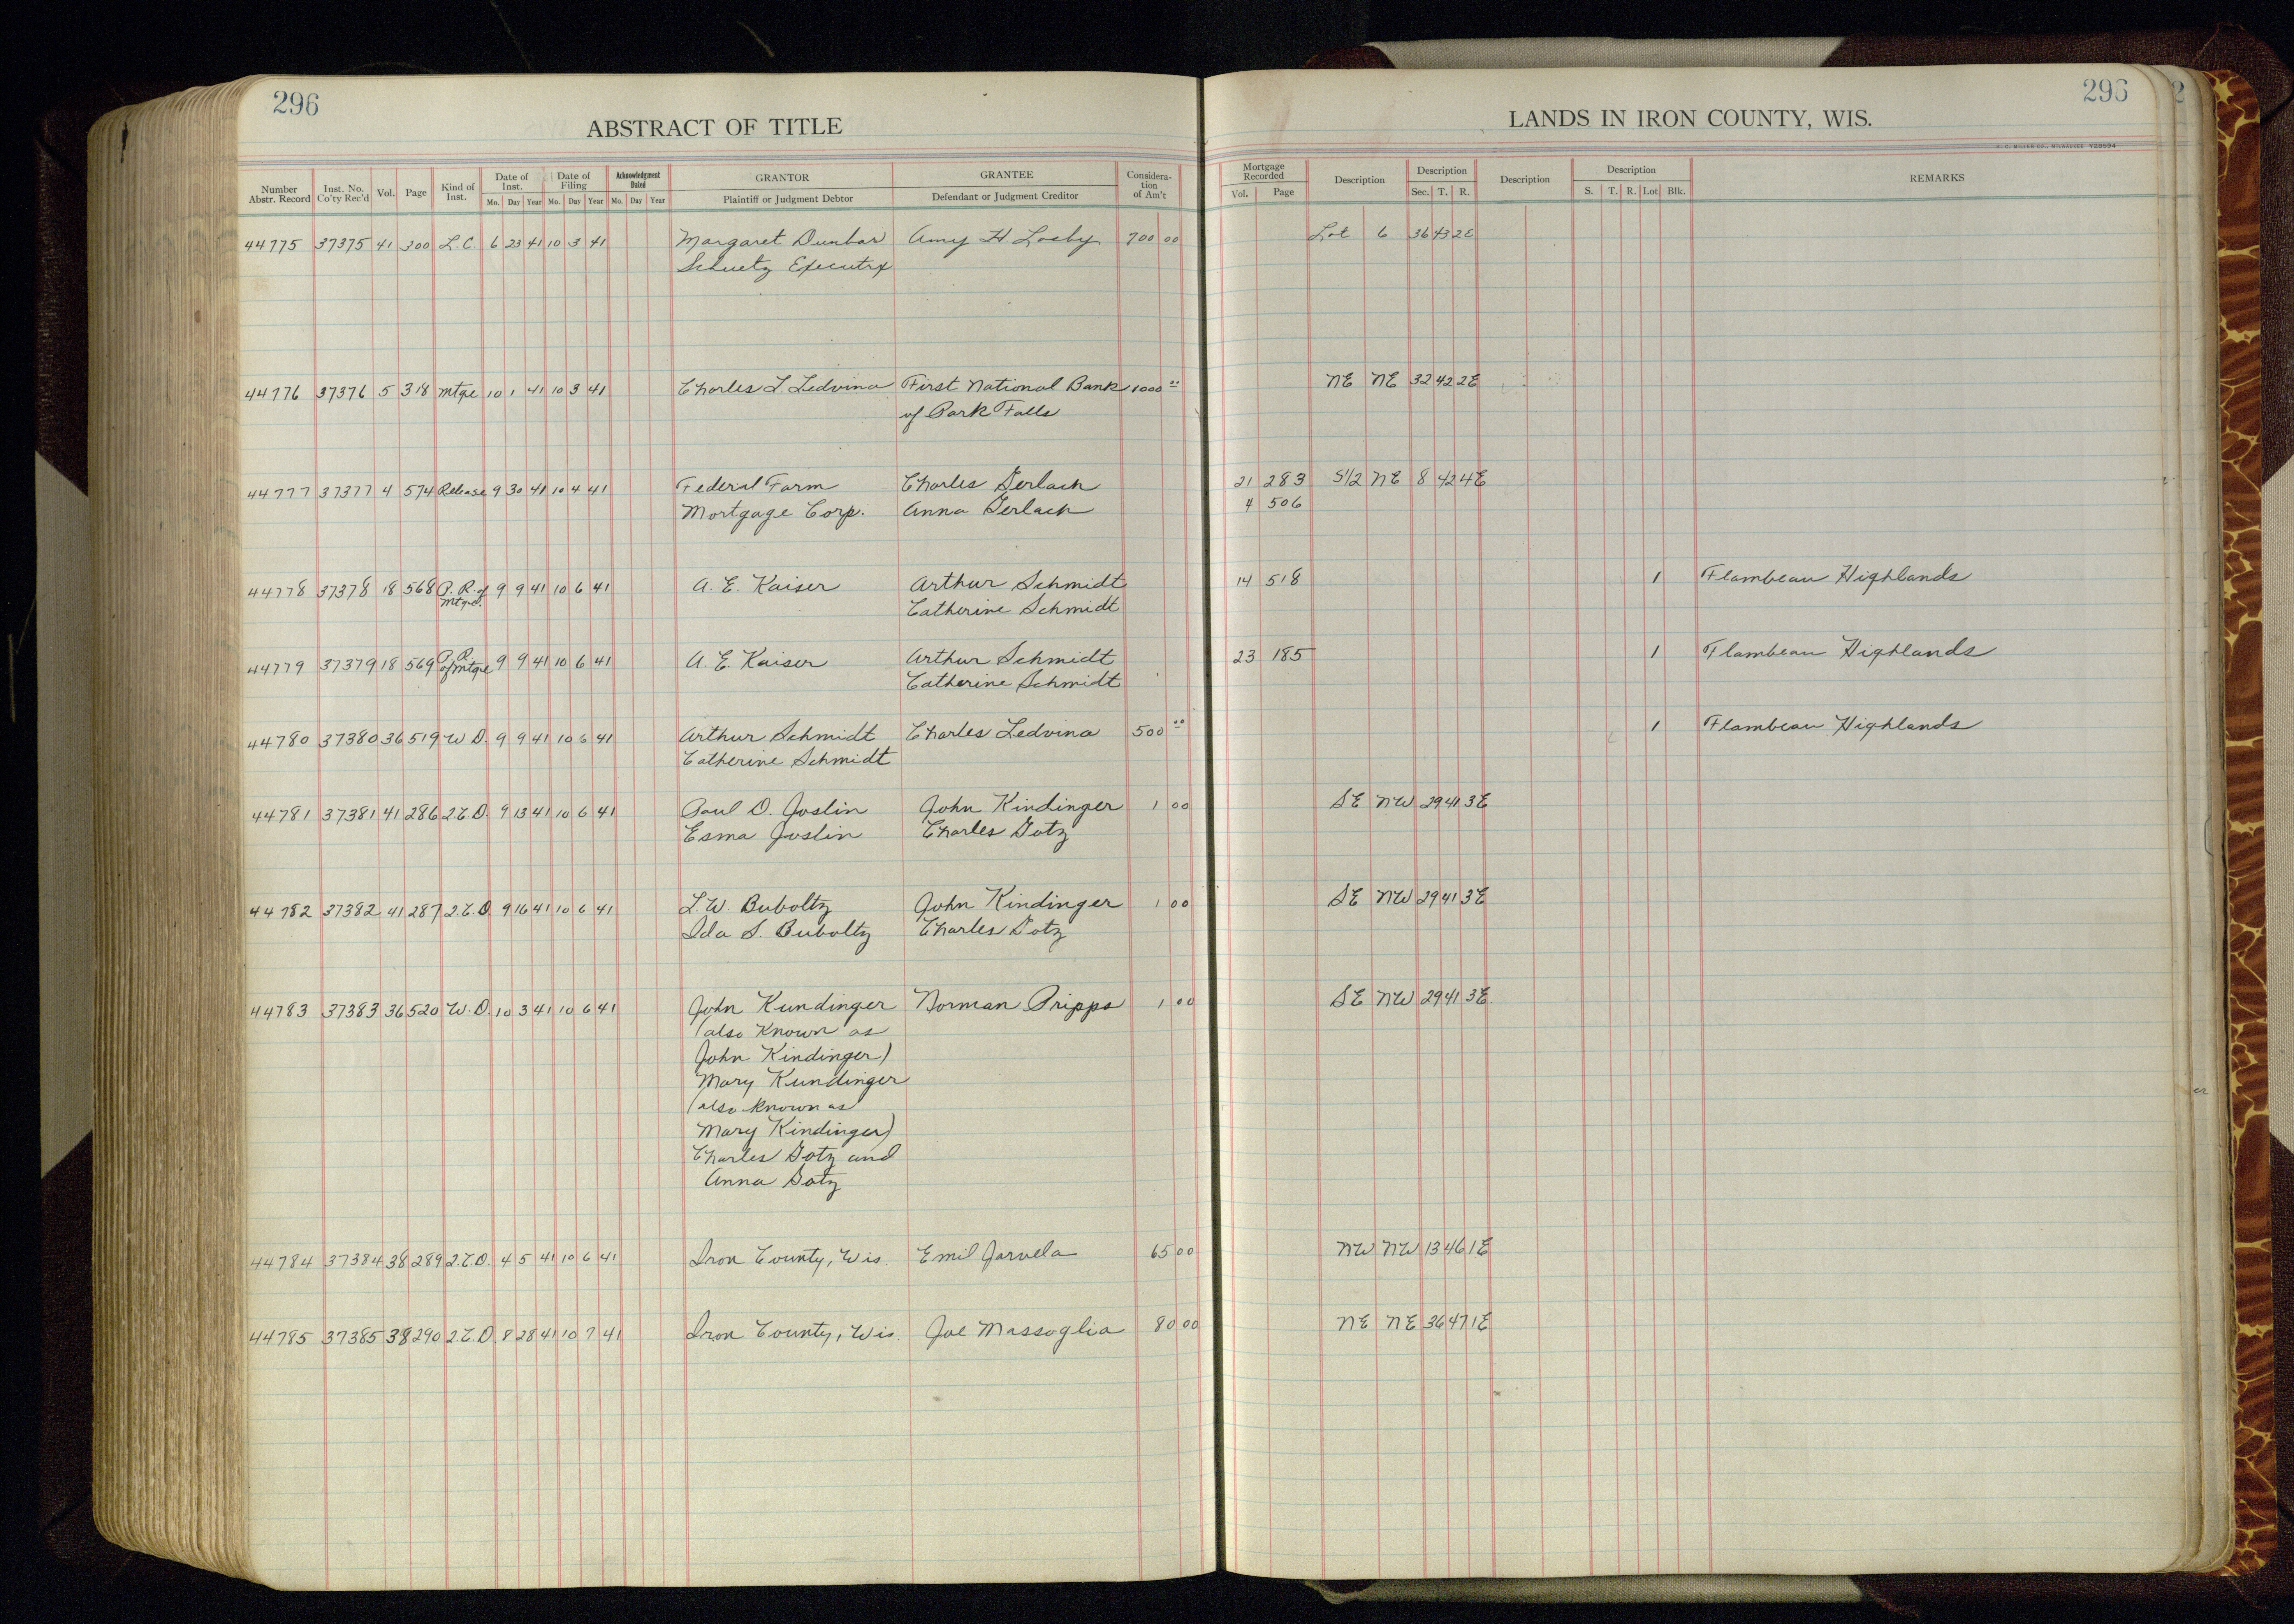 296
296
ABSTRACT OF TITLE
LANDS IN IRON COUNTY, WIS.
H. C. MILLER CO., MILWAUKEE Y20594
Number Abstr. Record Inst. No. Co'ty Rec'd Vol. Page Kind of Inst. Date of Inst. Mo. Day Year Date of Filing Mo. Day Year Acknowledgment Dated Mo. Day Year GRANTOR Plaintiff or Judgment Debtor GRANTEE Defendant or Judgment Creditor Consideration of Am't Mortgage Recorded Vol. Page Description Description Sec. T. R. Description Description S. T. R. Lot Blk. REMARKS
44775 37375 41 300 L.C. 6 23 41 10 3 41 Margaret Dunbar Amy H Losby 700 00 Lot 6 36 43 2E
Schuetz Executrx
44776 37376 5 318 Mtge 10 1 41 10 3 41 Charles L Ledvina First National Bank 1000 00 NE NE 32 42 2E
of Park Falls
44777 37377 4 574 Release 9 30 41 10 4 41 Federal Farm Charles Gerlach 21 283 S1/2 NE 8 42 4E
Mortgage Corp. Anna Gerlach 4 506
44778 37378 18 568 P. R. of Mtge. 9 9 41 10 6 41 A. E. Kaiser Arthur Schmidt 14 518 1 Flambeau Highlands
Catherine Schmidt
44779 37379 18 569 P. R. of Mtge 9 9 41 10 6 41 A. E. Kaiser Arthur Schmidt 23 185 1 Flambeau Highlands
Catherine Schmidt
44780 37380 36 519 W D. 9 9 41 10 6 41 Arthur Schmidt Charles Ledvina 500 00 1 Flambeau Highlands
Catherine Schmidt
44781 37381 41 286 2.C.D. 9 13 41 10 6 41 Paul D. Joslin John Kindinger 1 00 SE NW 29 41 3E
Esma Joslin Charles Gotz
44782 37382 41 287 2.C.D. 9 16 41 10 6 41 L. W. Buboltz John Kindinger 1 00 SE NW 29 41 3E
Ida S. Buboltz Charles Gotz
44783 37383 36 520 W. D. 10 3 41 10 6 41 John Kundinger Norman Pripps 1 00 SE NW 29 41 3E.
(also known as
John Kindinger)
Mary Kundinger
(also known as
Mary Kindinger)
Charles Gotz and
Anna Gotz
44784 37384 38 289 2.C.D. 4 5 41 10 6 41 Iron County, Wis. Emil Jarvela 65 00 NW NW 13 46 1E
44785 37385 38 290 2.C.D. 8 28 41 10 7 41 Iron County, Wis. Joe Massoglia 80 00 NE NE 36 47 1E